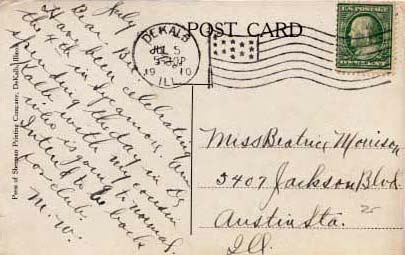 POST CARD
DEKALB
JUL 5
5-30P
1910
ILL.
U.S. POSTAGE
July
Dear Be:
Have been celebrating
the 4th in Sycamore. Am
spending the day in De
Kalb with my cousin
who is going to normal.
Intend to be back
for club.
M. W.
Miss Beatrice Morrison
5407 Jackson Blvd.
Austin Sta.
Ill.
25
Press of Sherman Printing Company, DeKalb, Illinois